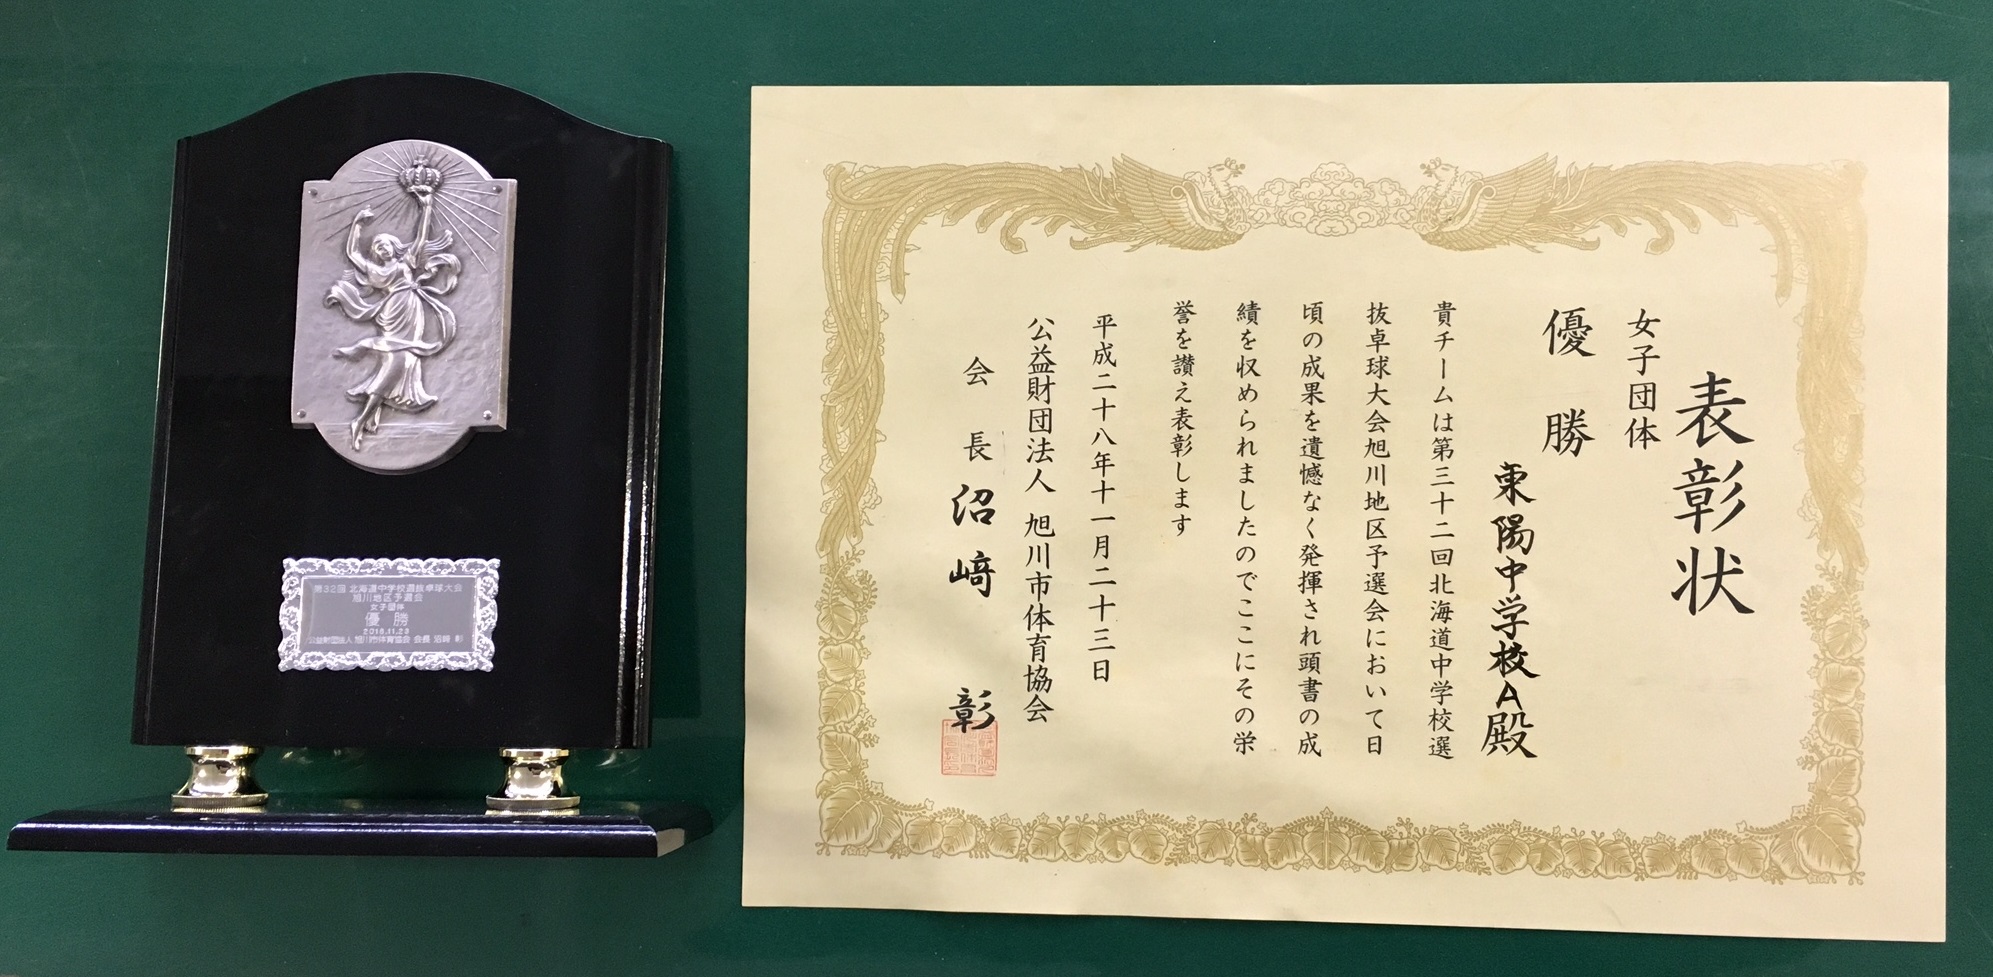 第32回 北海道中学校選抜卓球大会
旭川地区予選会
女子団体
優勝
2016.11.23
公益財団法人 旭川市体育協会 会長 沼﨑 彰
表彰状
女子団体
優勝
東陽中学校A殿
貴チームは第三十二回北海道中学校選
抜卓球大会旭川地区予選会において日
頃の成果を遺憾なく発揮され頭書の成
績を収められましたのでここにその栄
誉を讃え表彰します
平成二十八年十一月二十三日
公益財団法人 旭川市体育協会
会長 沼﨑 彰